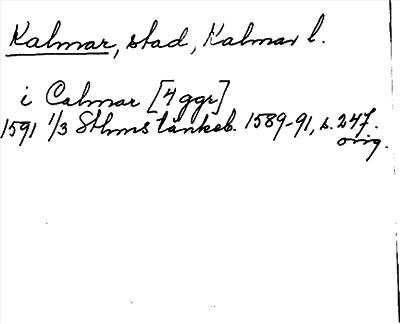 Kalmar, stad, Kalmar l.
i Calmar [4 ggr]
1591 1/3 Sthms tänkeb. 1589-91, s. 247.
orig.